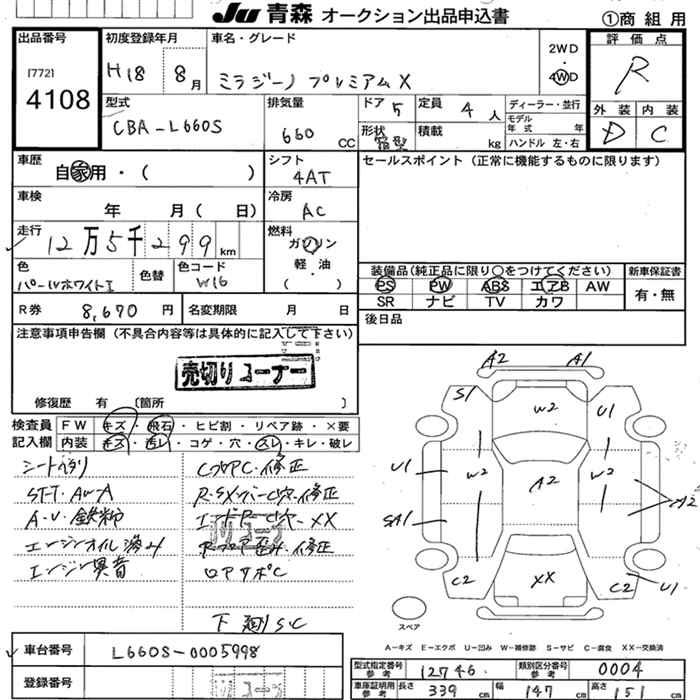 JU 青森 オークション出品申込書 ①商組用
出品番号
[772]
4108
初度登録年月
H18 8月
車名・グレード
ミラジーノ プレミアムX
2WD
・
4WD
評価点
R
外装 内装
D C
型式
CBA-L660S
排気量
660 CC
ドア 5
定員 4人
形状 箱型
積載 kg
ディーラー・並行
モデル年式 年
ハンドル 左・右
車歴
自家用・( )
シフト
4AT
セールスポイント(正常に機能するものに限ります)
車検
年 月( 日)
冷房
AC
走行
12万5千299km
燃料
ガソリン
軽・油
( )
色
パールホワイトI
色替
色コード
W16
装備品(純正品に限り○をつけてください)
PS PW ABS エアB AW
SR ナビ TV カワ
新車保証書
有・無
R券 8,670円
名変期限 月 日
後日品
注意事項申告欄(不具合内容等は具体的に記入して下さい)
売切りコーナー
修復歴 有 〔箇所 〕
検査員記入欄
FW キズ・飛石・ヒビ割・リペア跡・×要
内装 キズ・汚レ・コゲ・穴・スレ・キレ・破レ
エンジンオイル滲み
エンジン異音
CフロアC・修正
ロアサポC
下廻SC
A2 A1
S1 W2 U1
U1 W2 A2 W2
SA1
C2 XX C2 U1
スペア
A-キズ E-エクボ U-凹み W-補修跡 S-サビ C-腐食 XX-交換済
車台番号 L660S-0005998
登録番号
型式指定番号 参考 12746
類別区分番号 参考 0004
車庫証明用 参考 長さ 339cm 幅 147cm 高さ 151cm